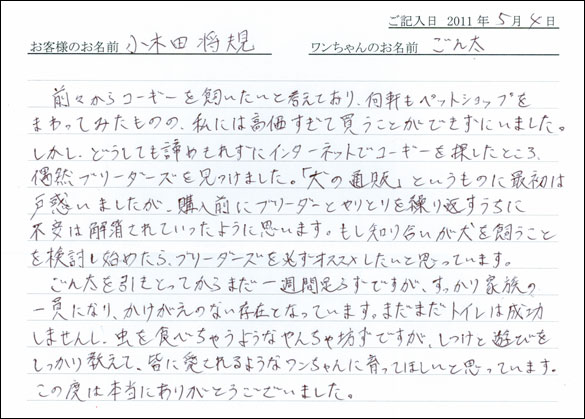 ご記入日 2011年 5月 4日
お客様のお名前 小木田 将規 ワンちゃんのお名前 ごん太
前々からコーギーを飼いたいと考えており、何軒もペットショップを
まわってみたものの、私には高価すぎて買うことができずにいました。
しかし、どうしても諦めきれずにインターネットでコーギーを探したところ、
偶然ブリーダーズを見つけました。「犬の通販」というものに最初は
戸惑いましたが、購入前にブリーダーとやりとりを繰り返すうちに
不安は解消されていったように思います。もし知り合いが犬を飼うこと
を検討し始めたら、ブリーダーズを必ずオススメしたいと思っています。
ごん太を引きとってからまだ一週間足らずですが、すっかり家族の
一員になり、かけがえのない存在となっています。まだまだトイレは成功
しませんし、虫を食べちゃうようなやんちゃ坊ずですが、しつけと遊びを
しっかり教えて、皆に愛されるようなワンちゃんに育ってほしいと思っています。
この度は本当にありがとうございました。